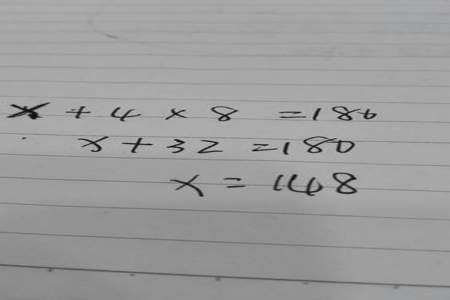 x + 4 x 8 = 180
x + 32 = 180
x = 148